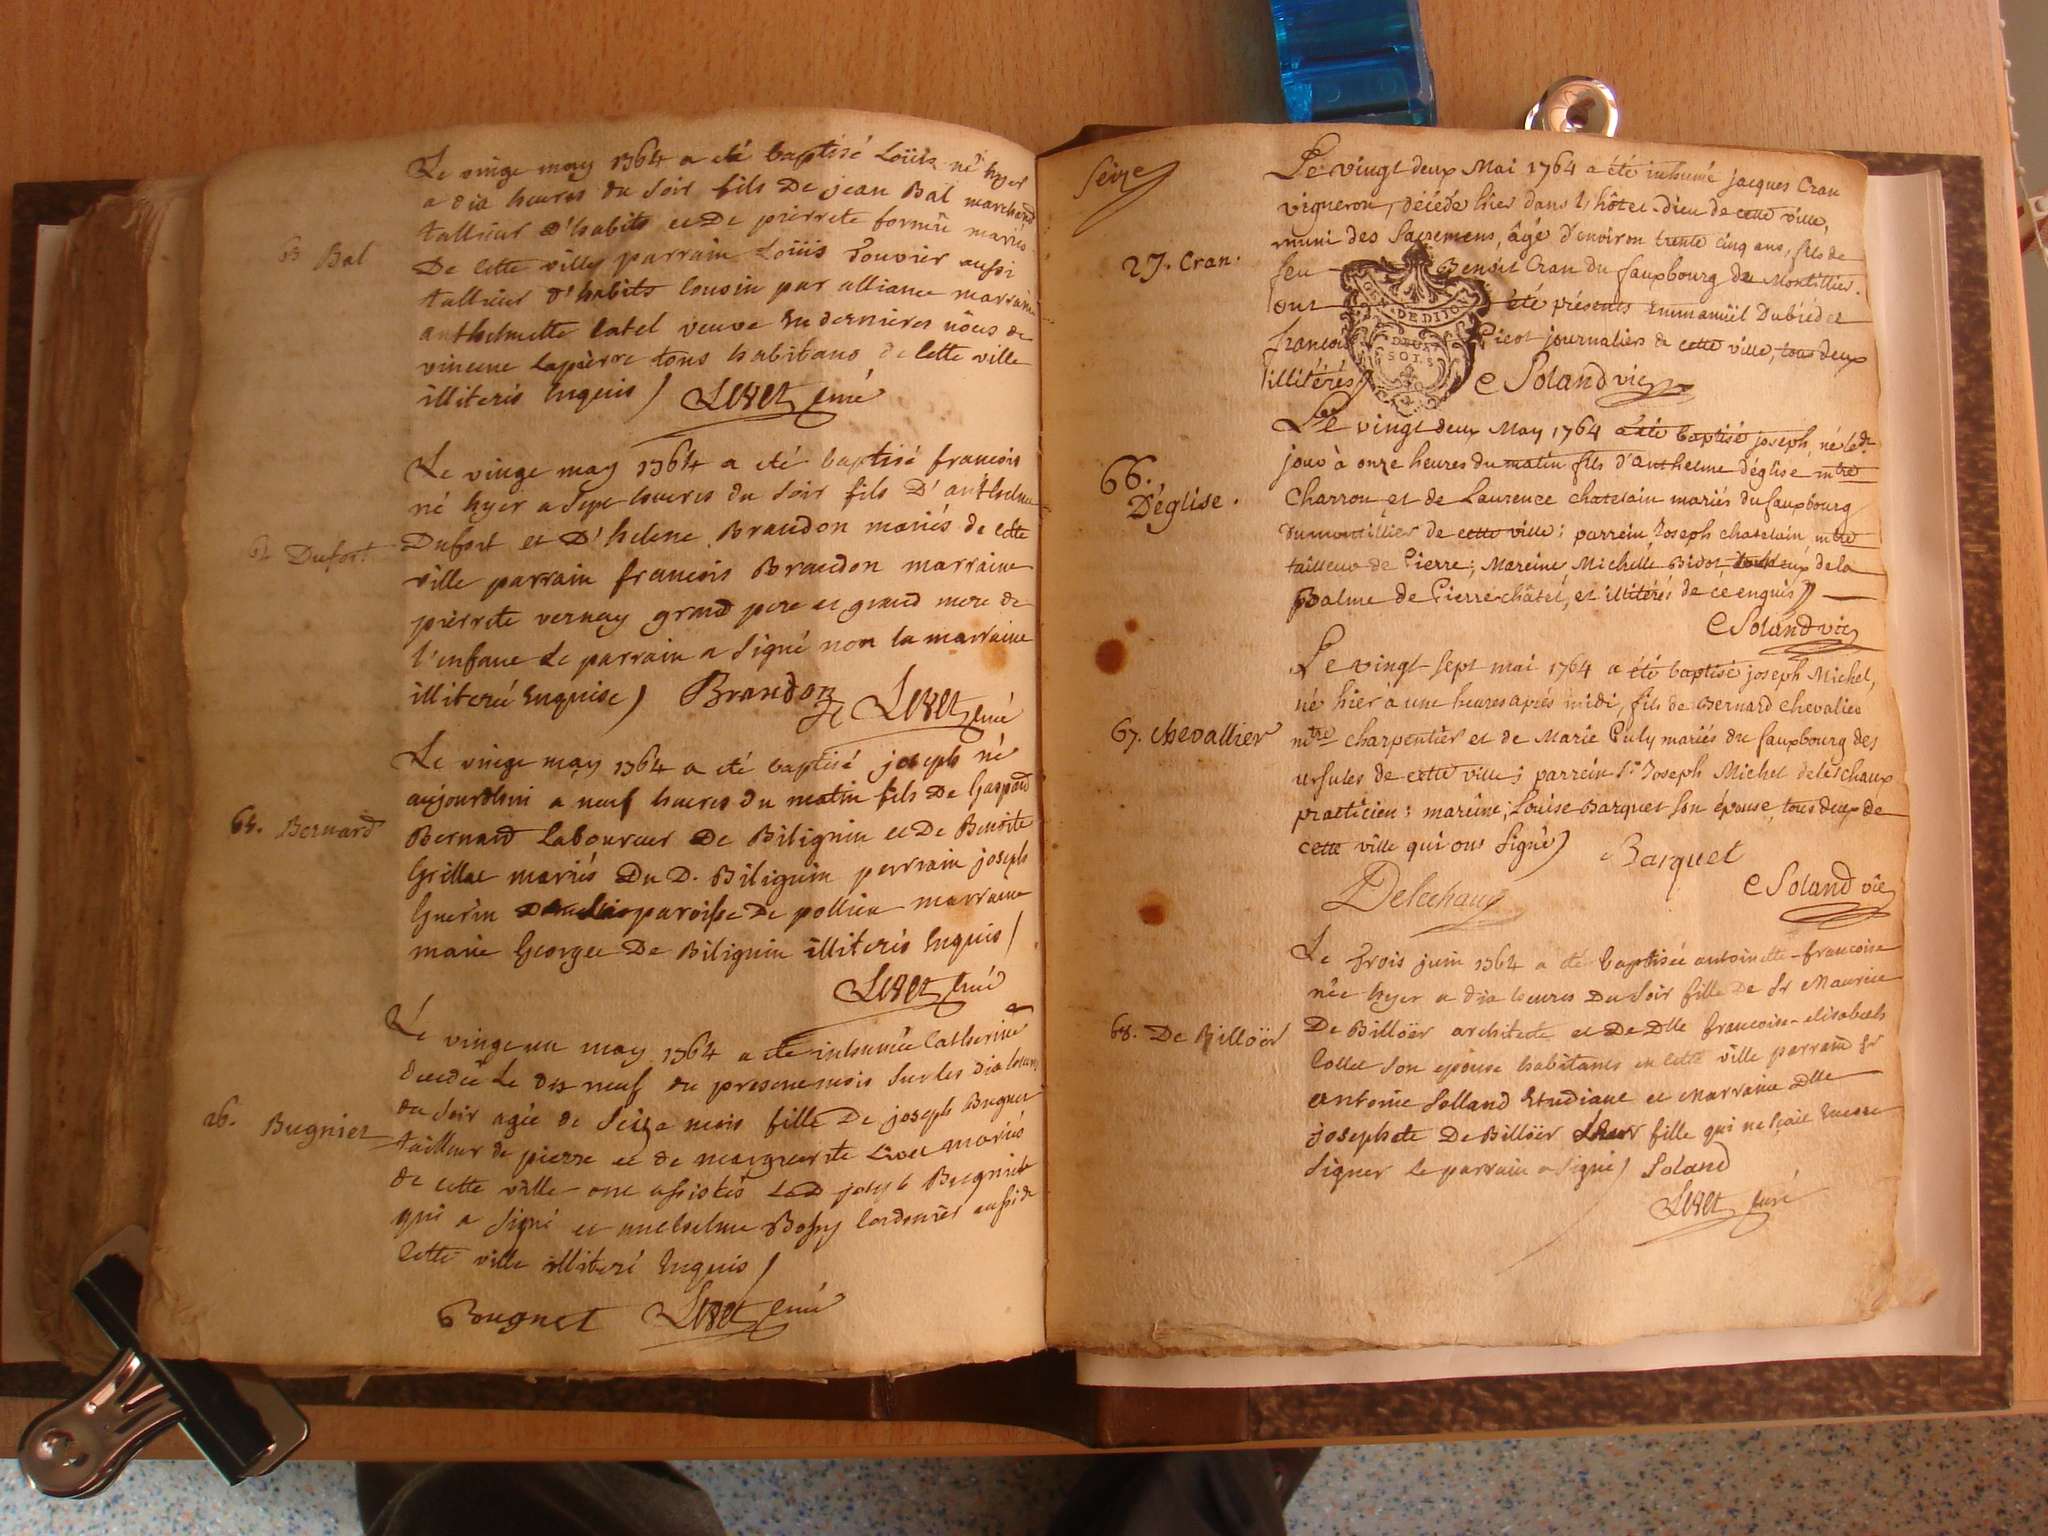 Le vingt may 1764 a eté baptisé Loüis né hyer
a dix heures du soir fils De jean Bal marchand
tallieur d'habits et De pierrete formïe mariés
63 Bal
De cette ville parrain Loüis Douvier aussi
tallieur d'habits cousin par alliance marraine
anthelmette Catel veuve en dernieres nôces de
vincent Lapierre tous habitans de cette ville
illiterés Enquis) Livet curé
Le vingt may 1764 a eté baptisé françois
né hyer a sept heures du soir fils D'anthelme
64 Dufort
Dufort et D'helene Brandon mariés de cette
ville parrain françois Brandon marraine
pierrete vernay grand pere et grand mere de
l'enfant Le parrain a signé non la marraine
illiteré Enquise) Brandon
Livet curé
Le vingt may 1764 a eté baptisé joseph né
aujourdhui a neuf heures du matin fils De Gaspard
65. Bernard
Bernard Laboureur De Bilignin et De Benoite
Grillet mariés Du D. Bilignin perrain joseph
Guerin paroisse De pollieu marraine
marie Georget De Bilignin illiterés Enquis)
Livet curé
Le vingt un may 1764 a eté inhumée Catherine
decedée Le dix neuf du present mois sur les dix heures
du soir agée de seize mois fille De joseph Bugnet
26. Bugniet
tailleur de pierre et de marguerite Livet mariés
de cette ville ont assistés Led joseph Bugniet
qui a signé et anthelme Bossy Cordonnier aussi de
cette ville illiteré Enquis)
Bugnet Livet curé
seize
Le vingt deux Mai 1764 a été inhumé jacques Cran
vigneron, décédé hier dans l'hôtel-dieu de cette ville,
muni des Sacremens, âgé d'environ trente cinq ans, fils de
27. Cran.
feu Benoit Cran du fauxbourg de Montillier.
ont été présents Emmanüel Dubied et
GEN. DE DIJON
DEUX
SOLS
françois Picot journaliers de cette ville, tous deux
illitérés) C Soland vic
Le vingt deux May 1764 a été baptisé joseph, né led.
jour à onze heures du matin fils d'Anthelme d'église mtre
66.
D'église.
Charron et de Laurence chatelain mariés du fauxbourg
du montillier de cette ville; parrein Joseph chatelain mtre
tailleur de Pierre; Mareine Michelle Bidot, tous deux de la
Balme de Pierre-châtel, et illitérés de ce enquis)
C Soland vic
Le vingt-sept mai 1764 a été baptisé joseph Michel,
né hier à une heure après midi, fils de Bernard chevalier
67. chevallier
mtre charpentier et de Marie Puly mariés du fauxbourg des
ursules de cette ville; parrein Sr. Joseph Michel delêchaux
practicien: mareine; Louise Barquet son épouse, tous deux de
cette ville qui ont signé) Barquet
Delechaux C Soland vic
Le trois juin 1764 a eté baptisée antoinette-francoise
née hyer a dix heures Du soir fille De Sr Maurice
68. De Billoër
De Billoër architecte et De Dlle francoise-elisabeth
Collet son epouse habitants en cette ville parrain Sr
antoine Solland Etudiant et Marraine Dlle
josephete De Billoër sœur fille qui ne sçait Encore
signer le parrain a signé) Soland
Livet curé